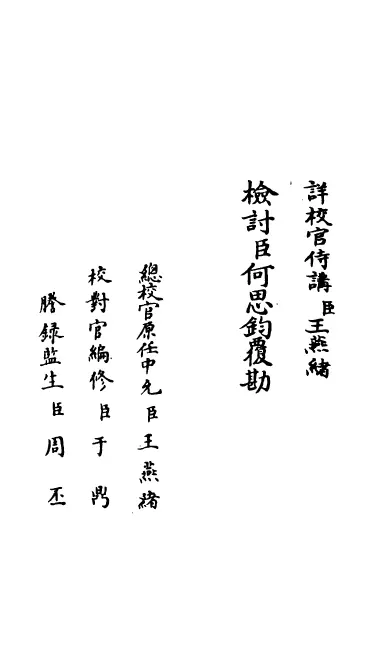 詳校官侍講臣王燕緒
檢討臣何思鈞覆勘
總校官原任中允臣王燕緒
校對官編修臣于鼎
謄錄監生臣周丕